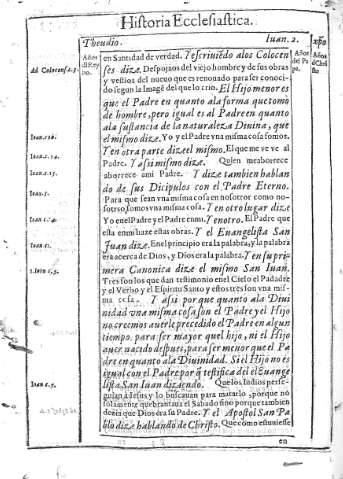 Historia Ecclesiastica.
Theudio.
Iuan. 2.
Años
del Rey
no.
Años
del Pa
po.
Años
dChri
sto
ad Colocens. c. 3.
en Santidad de verdad. Y escriuiẽdo alos Colocen
ses dize. Despojaos del viejo hombre y de sus obras
y vestíos del nueuo que es renouado para ser conoci-
do segun la Imagẽ del que lo crio. El Hijo menor es
que el Padre en quanto ala forma que tomó
de hombre, pero igual es al Padre en quanto
ala sustancia de la naturaleza Diuina, que
el mismo dize. Yo y el Padre vna misma cosa somos.
Y en otra parte dize el mismo. El que me ve ve al
Padre. Y assi mismo dize. Quien me aborrece
aborrece ami Padre. Y dize tambien hablan
do de sus Dicipulos con el Padre Eterno.
Para que sean vna misma cosa en nosotros como no-
sotros somos vna misma cosa. Y en otro lugar dize
Yo en el Padre y el Padre en mi. Y en otro. El Padre que
esta en mi haze estas obras. Y el Euangelista San
Juan dize. En el principio era la palabra, y la palabra
era acerca de Dios, y Dios era la palabra. Y en su pri-
mera Canonica dize el mismo San Iuan.
Tres son los que dan testimonio en el Cielo el Padre
y el Verbo y el Espiritu Santo y estos tres son vna mis-
ma cosa. Y assi por que quanto ala Diui
nidad vna misma cosa son el Padre y el Hijo
no creemos auerle precedido el Padre en algun
tiempo, para ser mayor quel hijo, ni el Hijo
auer nacido despues, para ser menor que el Pa
dre en quanto ala Diuinidad. Si el Hijo no es
igual con el Padre por q̃ testifica del el Euange
lista San Iuan diziendo. Que los Iudios perse-
guian à Iesus y lo buscauan para matarlo, porque no
solamente quebrantaua el Sabado sino porque tambien
dezia que Dios era su Padre. Y el Apostol San Pa
blo dize hablando de Christo. Que como estuuiesse
en